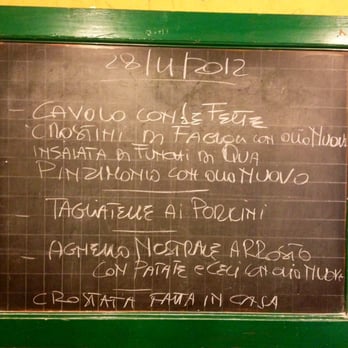 28/11/2012
- CAVOLO CON LE FETTE
CROSTINI DI FAGIOLI CON OLIO NUOVO
INSALATA DI FUNGHI DI QUA
PINZIMONIO CON OLIO NUOVO
- TAGLIATELLE AI PORCINI
- AGNELLO NOSTRALE ARROSTO
CON PATATE E CECI CON OLIO NUOVO
CROSTATA FATTA IN CASA